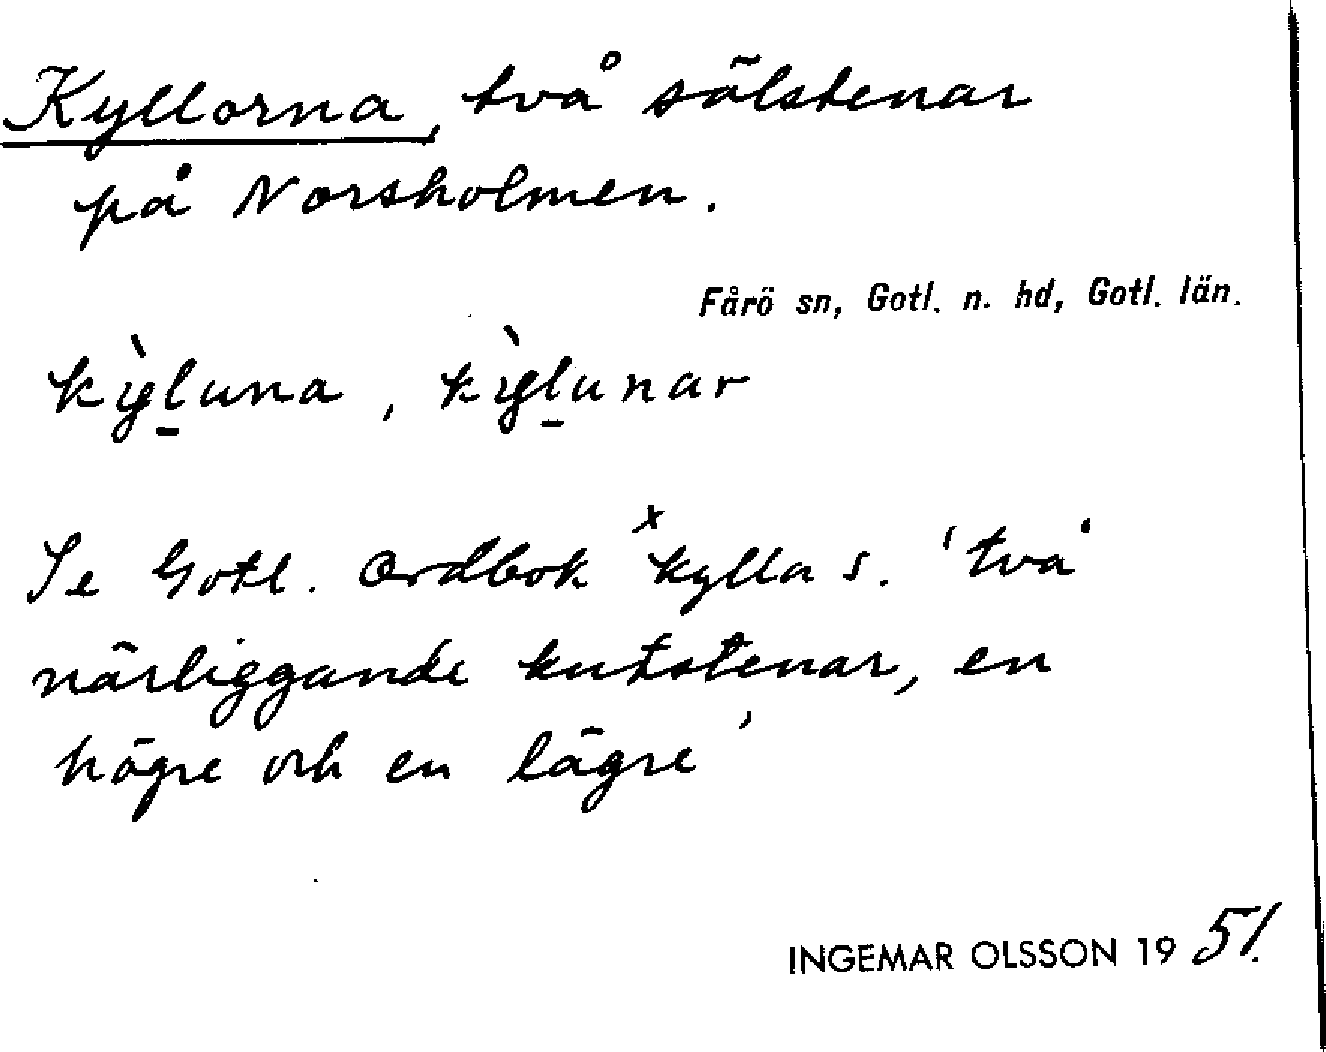 Kyllorna, två sälstenar
på Norsholmen.
Fårö sn, Gotl. n. hd, Gotl. län.
kỳḻuna, kỳḻunar
Se Gotl. Ordbok ˣkylla s. 'två
närliggande kutstenar, en
högre och en lägre'
INGEMAR OLSSON 1951.